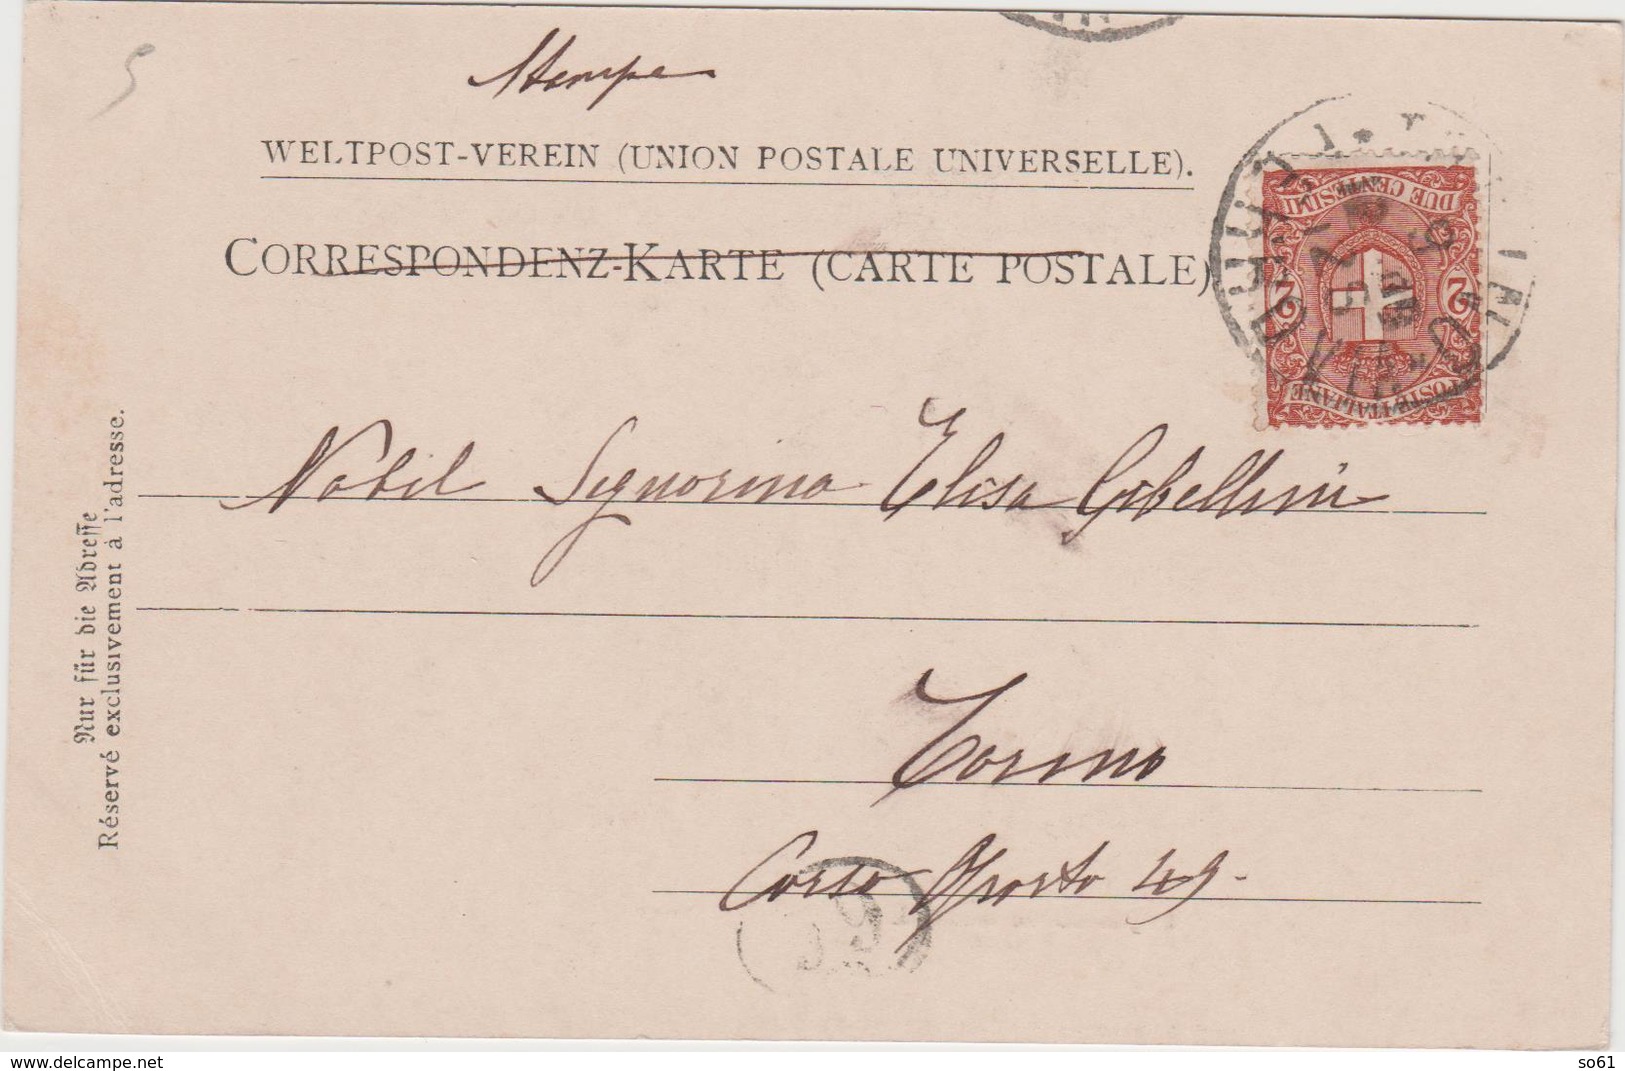 5
Stampe
WELTPOST-VEREIN (UNION POSTALE UNIVERSELLE).
CORRESPONDENZ-KARTE (CARTE POSTALE)
DUE CENTESIMI
2 2
POSTE ITALIANE
Nobil Signorina Elisa Gibellini
Torino
Corso Oporto 49.
Nur für die Adresse
Réservé exclusivement à l'adresse.
www.delcampe.net
so61